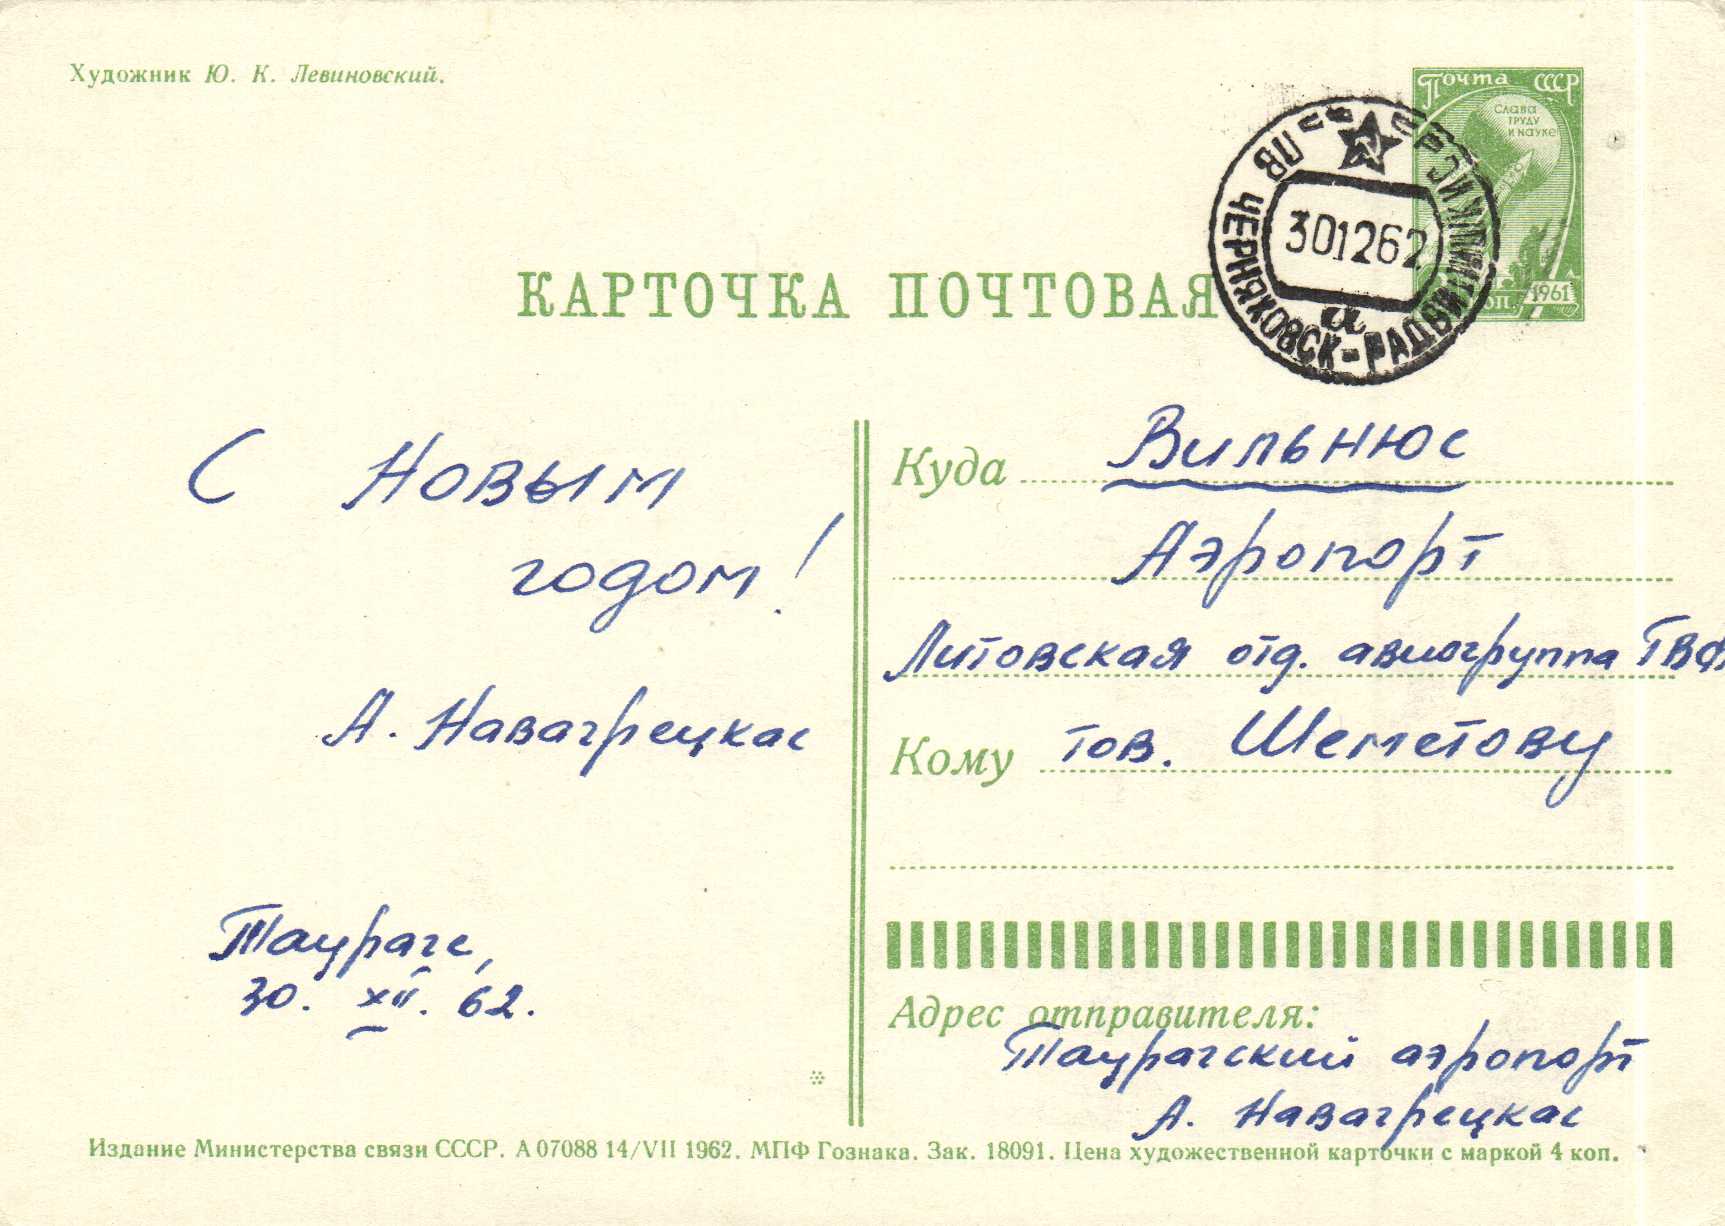 Художник Ю. К. Левиновский.
Почта СССР
СЛАВА
ТРУДУ
И НАУКЕ
КОП. 1961
ПВ ЧЕРНЯХОВСК-РАДВИЛИШКИС
30 12 62
а
КАРТОЧКА ПОЧТОВАЯ
С Новым
годом!
А. Навагрецкас
Таураге,
30. XII. 62.
Куда Вильнюс
Аэропорт
Литовская отд. авиагруппа ГВФ
Кому тов. Шеметову
Адрес отправителя:
Таурагский аэропорт
А. Навагрецкас
Издание Министерства связи СССР. А 07088 14/VII 1962. МПФ Гознака. Зак. 18091. Цена художественной карточки с маркой 4 коп.